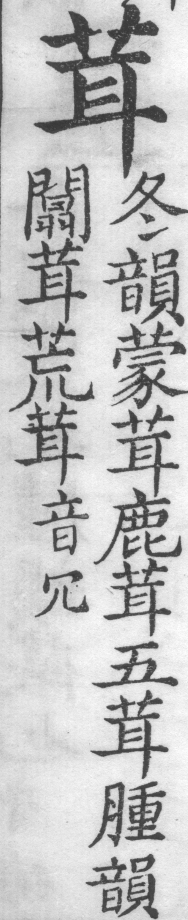 茸
冬韻蒙茸鹿茸五茸腫韻
闒茸荒茸音冗